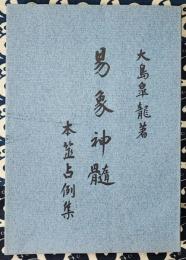 大鳥皐龍著
易象神髄
本筮占例集